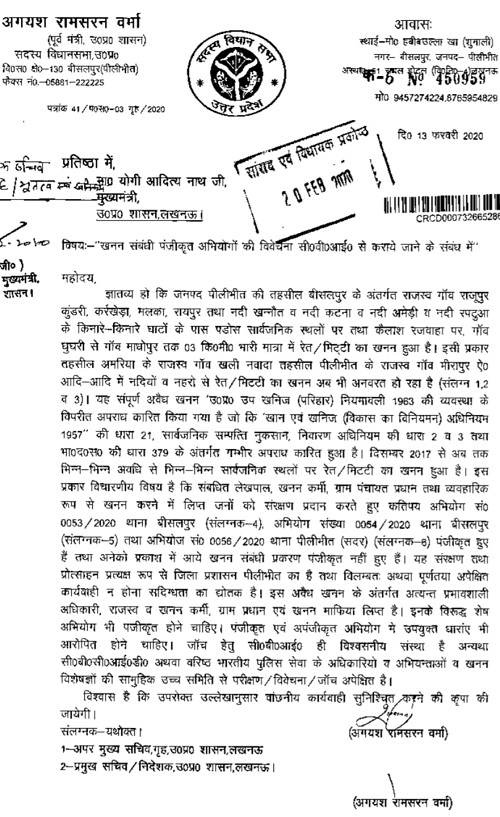 अगयश रामसरन वर्मा
(पूर्व मंत्री, उ०प्र० शासन)
सदस्य विधानसभा,उ०प्र०
वि०स० क्षे०-130 बीसलपुर(पीलीभीत)
फैक्स नं०-05881-222225
पत्रांक 41/प०स०-03 गृह/2020
सदस्य विधान सभा
उत्तर प्रदेश
आवासः
स्थाई-मो० हबीबउल्ला खा (शुमाली)
नगर- बीसलपुर, जनपद- पीलीभीत
क-5 № 450959
मो० 9457274224,8765954829
दि० 13 फरवरी 2020
सांसद एवं विधायक प्रकोष्ठ
20 FEB 2020
CRCD000732665286
प्रतिष्ठा में,
मा० योगी आदित्य नाथ जी,
मुख्यमंत्री,
उ०प्र० शासन,लखनऊ।
विषयः-"खनन संबंधी पंजीकृत अभियोगों की विवेचना सी०बी०आई० से कराये जाने के संबंध में"
जी०)
मुख्यमंत्री,
शासन।
महोदय,
ज्ञातव्य हो कि जनपद पीलीभीत की तहसील बीसलपुर के अंतर्गत राजस्व गाँव राजूपुर
कुंडरी, कर्रखेड़ा, मलका, रायपुर तथा नदी खन्नौत व नदी कटना व नदी अमेड़ी व नदी रपटुआ
के किनारे-किनारे घाटों के पास पडोस सार्वजनिक स्थलों पर तथा कैलाश रजवाहा पर, गाँव
घुघरी से गाँव माधोपुर तक 03 कि०मी० भारी मात्रा में रेत/मिट्टी का खनन हुआ है। इसी प्रकार
तहसील अमरिया के राजस्व गाँव खली नवादा तहसील पीलीभीत के राजस्व गाँव मीरापुर ऐ०
आदि-आदि में नदियों व नहरो से रेत/मिटटी का खनन अब भी अनवरत हो रहा है (संलग्न 1,2
व 3)। यह संपूर्ण अवैध खनन 'उ०प्र० उप खनिज (परिहार) नियमावली 1963 की व्यवस्था के
विपरीत अपराध कारित किया गया है जो कि 'खान एवं खनिज (विकास का विनियमन) अधिनियम
1957" की धारा 21, सार्वजनिक सम्पत्ति नुकसान, निवारण अधिनियम की धारा 2 व 3 तथा
भा०द०स० की धारा 379 के अंतर्गत गम्भीर अपराध कारित हुआ है। दिसम्बर 2017 से अब तक
भिन्न-भिन्न अवधि से भिन्न-भिन्न सार्वजनिक स्थलों पर रेत/मिटटी का खनन हुआ है। इस
प्रकार विचारणीय विषय है कि संबधित लेखपाल, खनन कर्मी, ग्राम पंचायत प्रधान तथा व्यवहारिक
रूप से खनन करने में लिप्त जनों को संरक्षण प्रदान करते हुए कतिपय अभियोग सं०
0053/2020 थाना बीसलपुर (संलग्नक-4), अभियोग संख्या 0054/2020 थाना बीसलपुर
(संलग्नक-5) तथा अभियोज सं० 0056/2020 थाना पीलीभीत (सदर) (संलग्नक-6) पंजीकृत हुए
हैं तथा अनेको प्रकाश में आये खनन संबंधी प्रकरण पंजीकृत नहीं हुए हैं। यह संरक्षण तथा
प्रोत्साहन प्रत्यक्ष रूप से जिला प्रशासन पीलीभीत का है तथा विलम्बतः अथवा पूर्णतया अपेक्षित
कार्यवाही न होना सदिग्धता का द्योतक है। इस अवैध खनन के अंतर्गत अत्यन्त प्रभावशाली
अधिकारी, राजस्व व खनन कर्मी, ग्राम प्रधान एवं खनन माफिया लिप्त है। इनके विरूद्ध शेष
अभियोग भी पजीकृत होने चाहिए। पंजीकृत एवं अपंजीकृत अभियोग मे उपयुक्त धाराएं भी
आरोपित होने चाहिए। जाँच हेतु सी०बी०आई० ही विश्वसनीय संस्था है अन्यथा
सी०बी०सी०आई०डी० अथवा वरिष्ठ भारतीय पुलिस सेवा के अधिकारियो व अभियन्ताओं व खनन
विशेषज्ञों की सामुहिक उच्च समिति से परीक्षण/विवेचना/जाँच अपेक्षित है।
विश्वास है कि उपरोक्त उल्लेखानुसार वांछनीय कार्यवाही सुनिश्चित करने की कृपा की
जायेगी।
संलग्नक-यथोक्त।
(अगयश रामसरन वर्मा)
1-अपर मुख्य सचिव,गृह,उ०प्र० शासन,लखनऊ
2-प्रमुख सचिव/निदेशक,उ०प्र० शासन,लखनऊ।
(अगयश रामसरन वर्मा)